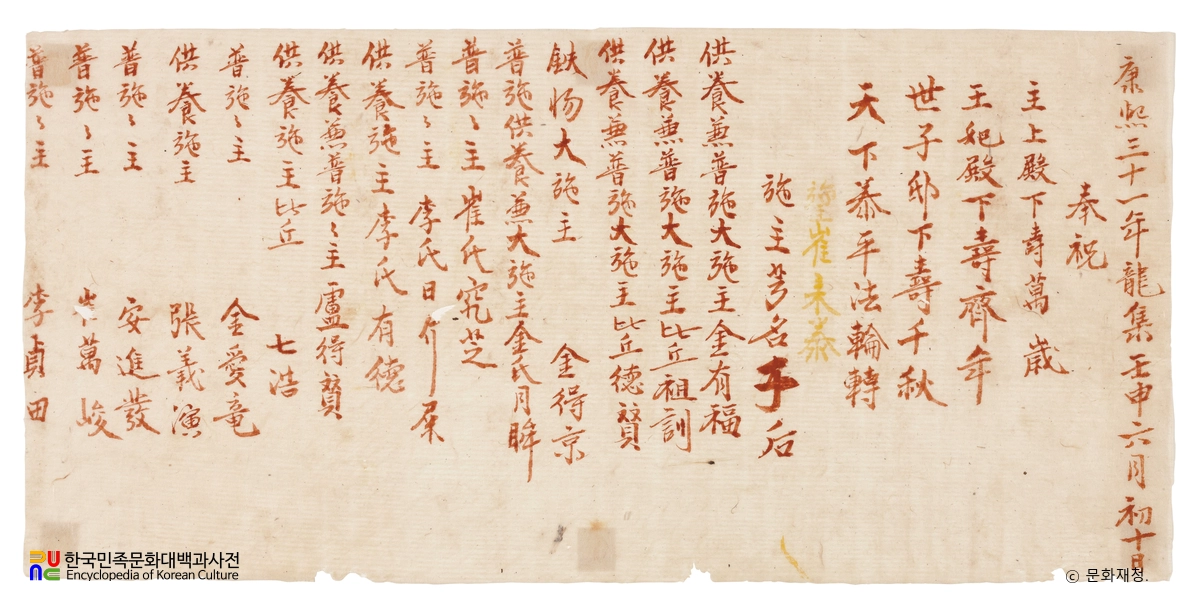 康熙三十一年龍集壬申六月初十日
奉祝
主上殿下壽萬歲
王妃殿下壽齊年
世子邸下壽千秋
天下泰平法輪轉
崔未
施主芳名于后
供養兼普施大施主金有福
供養兼普施大施主比丘祖訓
供養兼普施大施主比丘德贊
鈇物大施主 金得京
普施供養兼大施主金氏月
普施〻主崔氏
普施〻主 李氏日
供養施主李氏有德
供養兼普施〻主盧得贊
供養施主比丘 七浩
普施〻主 金愛竜
供養施主 張義演
普施〻主 安進發
普施〻主 萬峻
普施〻主 李貞田
한국민족문화대백과사전
Encyclopedia of Korean Culture
ⓒ 문화재청.